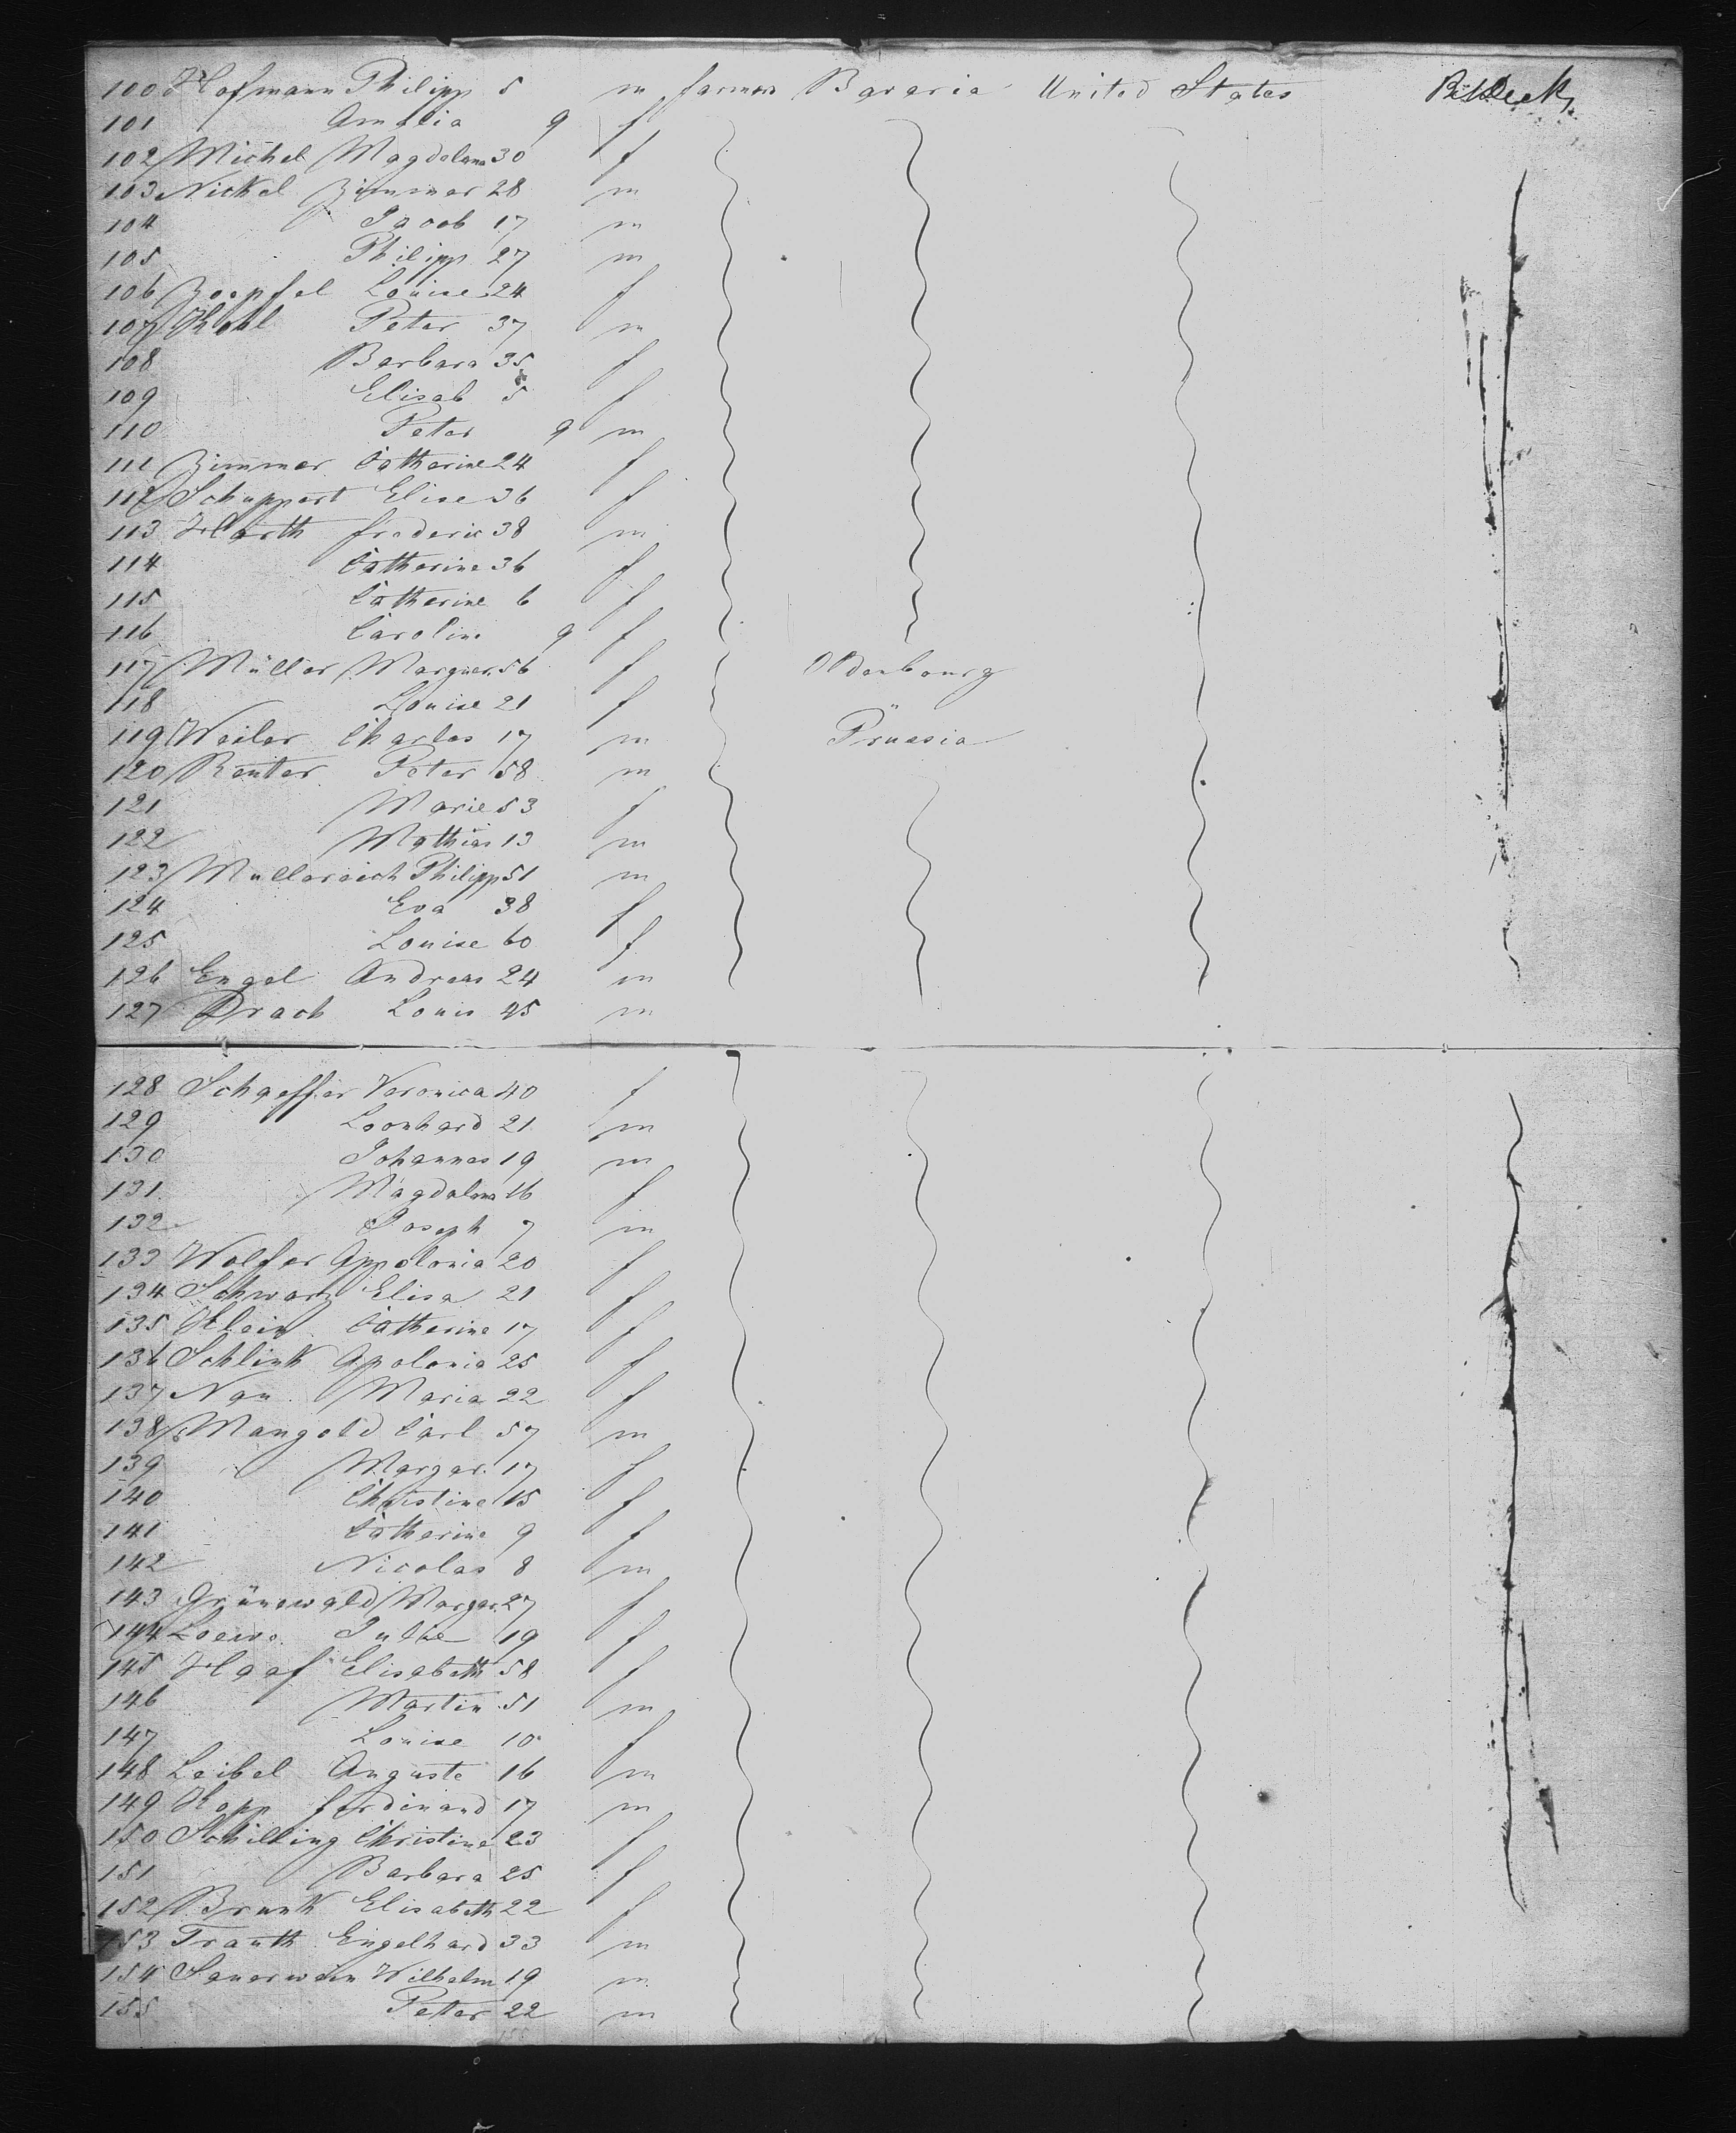 100 Hofmann Philipp 5 m farmer Bavaria United States
101 Amalia 9 f
102 Michel Magdalena 30 f
103 Nickel Zimmer 28 m
104 Jacob 17 m
105 Philipp 27 m
106 Zoepfel Louise 24 f
107 Kohl Peter 37 m
108 Barbara 35 f
109 Elisab 5 f
110 Peter 9 m
111 Zimmer Catherine 24 f
112 Schuppert Elise 36 f
113 Harth frederic 38 m
114 Catherine 36 f
115 Catherine 6 f
116 Caroline 9 f
117 Müller Marguer. 56 f Oldenbourg
118 Louise 21 f
119 Weiler Charles 17 m Prussia
120 Reuter Peter 58 m
121 Marie 53 f
122 Mathias 13 m
123 Mullereich Philipp 51 m
124 Eva 38 f
125 Louise 60 f
126 Engel Andreas 24 m
127 Drach Louis 45 m
128 Schaeffer Veronica 40 f
129 Leonhard 21 m
130 Johannes 19 m
131 Magdalena 16 f
132 Joseph 7 m
133 Wolfer Appolonia 20 f
134 Schwarz Elisa 21 f
135 Klein Catherine 17 f
136 Schlink Apolonia 25 f
137 Nau Maria 22 f
138 Mangold Carl 57 m
139 Margar. 17 f
140 Christine 15 f
141 Catherine 9 f
142 Nicolas 8 m
143 Grünewald Margar. 27 f
144 Loewe Julie 19 f
145 Haaf Elisabeth 58 f
146 Martin 51 m
147 Louise 10 f
148 Leibel Auguste 16 m
149 Kopp ferdinand 17 m
150 Schilling Christine 23 f
151 Barbara 25 f
152 Brunk Elisabeth 22 f
153 Trauth Engelhard 33 m
154 Sauerwein Wilhelm 19 m
155 Peter 22 m